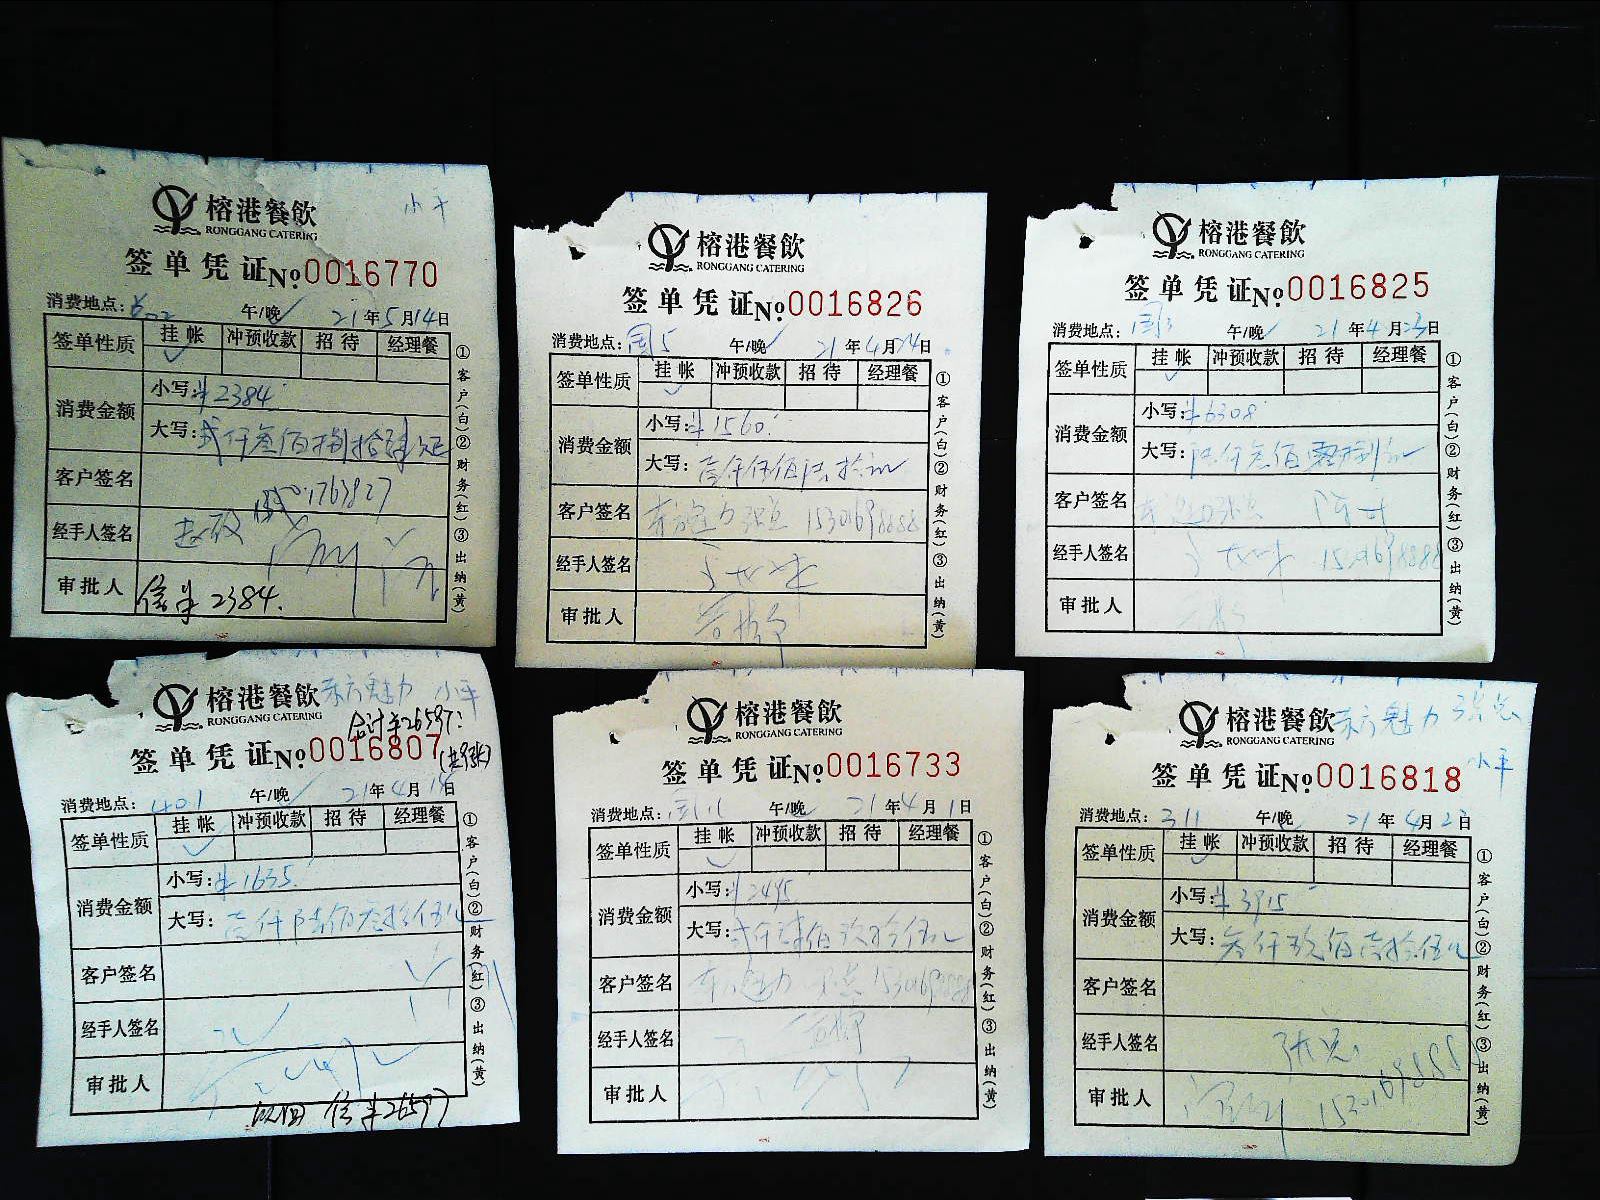 榕港餐飲 小平
RONGGANG CATERING
签单凭证 No 0016770
消费地点: 午/晚 21年5月14日
签单性质 挂帐 冲预收款 招待 经理餐
消费金额 小写: ¥2384
大写: 贰仟叁佰捌拾肆元正
客户签名 1763827
经手人签名
审批人 信¥2384.
①客户(白)②财务(红)③出纳(黄)
榕港餐飲
RONGGANG CATERING
签单凭证 No 0016826
消费地点: 周5 午/晚 21年4月24日
签单性质 挂帐 冲预收款 招待 经理餐
消费金额 小写: ¥1560
大写: 壹仟伍佰陆拾元
客户签名 15301698888
经手人签名
审批人
①客户(白)②财务(红)③出纳(黄)
榕港餐飲
RONGGANG CATERING
签单凭证 No 0016825
消费地点: 午/晚 21年4月23日
签单性质 挂帐 冲预收款 招待 经理餐
消费金额 小写: ¥6308
大写: 陆仟叁佰零捌元
客户签名
经手人签名 15301698888
审批人
①客户(白)②财务(红)③出纳(黄)
榕港餐飲 东方魅力 小平
RONGGANG CATERING 合计¥26597
签单凭证 No 0016807 (共9张)
消费地点: 401 午/晚 21年4月18日
签单性质 挂帐 冲预收款 招待 经理餐
消费金额 小写: ¥1635
大写: 壹仟陆佰叁拾伍元
客户签名
经手人签名
审批人
信¥26597
①客户(白)②财务(红)③出纳(黄)
榕港餐飲
RONGGANG CATERING
签单凭证 No 0016733
消费地点: 午/晚 21年4月1日
签单性质 挂帐 冲预收款 招待 经理餐
消费金额 小写: ¥2495
大写: 贰仟肆佰玖拾伍元
客户签名 东方魅力 15301698888
经手人签名
审批人
①客户(白)②财务(红)③出纳(黄)
榕港餐飲 东方魅力 张总
RONGGANG CATERING
签单凭证 No 0016818 小平
消费地点: 311 午/晚 21年4月23日
签单性质 挂帐 冲预收款 招待 经理餐
消费金额 小写: ¥3915
大写: 叁仟玖佰壹拾伍元
客户签名
经手人签名 张总
审批人 15301698888
①客户(白)②财务(红)③出纳(黄)